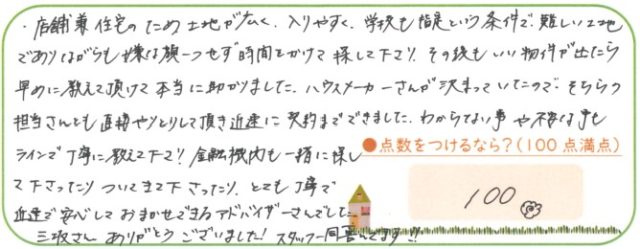 ・店舗兼住宅のため土地が広く、入りやすく、学校も指定という条件で難しい土地
でありながらも嫌な顔一つせず時間をかけて探して下さり、その後もいい物件が出たら
早めに教えて頂けて本当に助かりました。ハウスメーカーさんが決まっていたので、そちらの
担当さんとも直接やりとりして頂き迅速に契約までできました。わからない事や不安な事も
ラインで丁寧に教えて下さり金融機関も一緒に探し
て下さったりついてきて下さったり、とても丁寧で
迅速で安心しておまかせできるアドバイザーさんでした。
三坂さんありがとうございました！スタッフ一同
●点数をつけるなら？（100点満点）
100